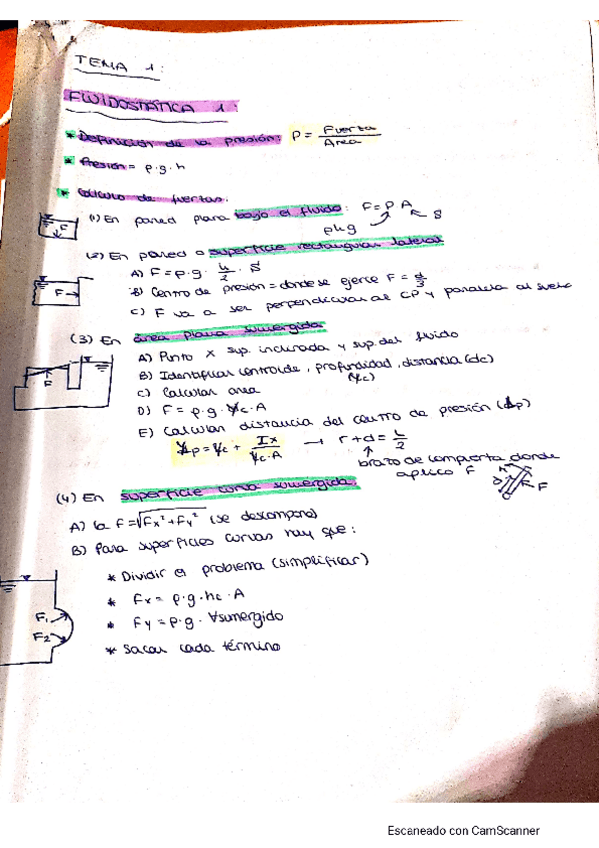 TEMA 1:
FLUIDOSTÁTICA 1:
* Definición de la presión: P = Fuerza / Area
* Presión = ρ·g·h
* Cálculo de fuerzas:
(1) En pared plana bajo el fluido: F = P A
ρhg S
F
(2) En pared o superficie rectangular lateral
A) F = ρ·g· h/2 · S
B) Centro de presión = donde se ejerce F = d/3
F
C) F va a ser perpendicular al CP y paralela al suelo
(3) En área plana sumergida
A) Punto x sup. inclinada y sup. del fluido
B) Identificar centroide, profundidad, distancia (dc)
(yc)
F
C) Calcular area
D) F = ρ·g·yc·A
E) Calcular distancia del centro de presión (Lp)
Lp = yc + Ix / yc·A → r+d = L/2
brazo de compuerta donde
aplico F
D F
(4) En superficie curva sumergida.
A) la F = √Fx² + Fy² (se descompone)
B) Para superficies curvas hay que:
* Dividir el problema (simplificar)
* Fx = ρ·g·hc·A
F1
* Fy = ρ·g·∀sumergido
F2
* Sacar cada término
Escaneado con CamScanner